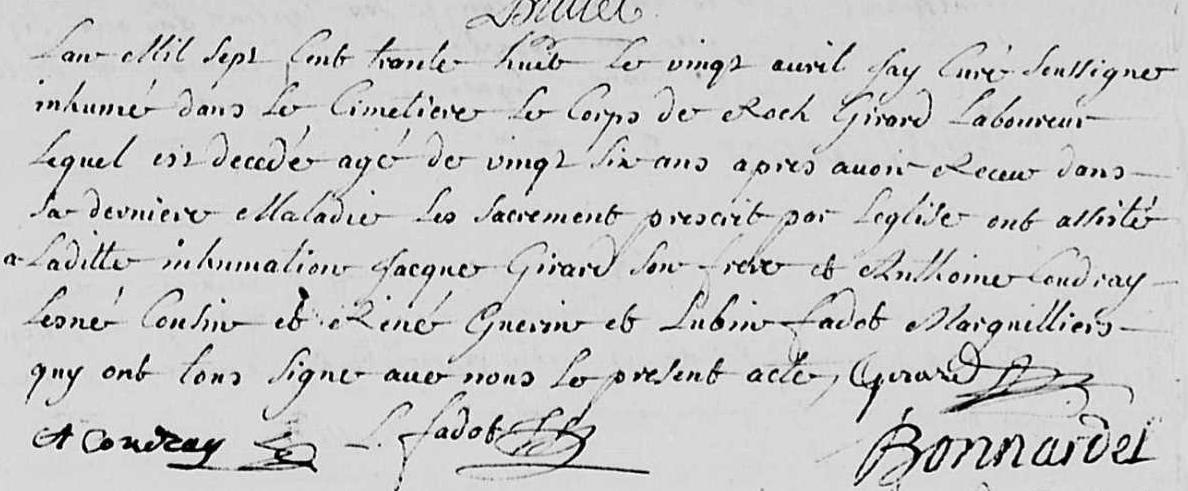 Lan Mil sept Cent trante huit le vingt avril Jay Curé soussigne
inhumé dans Le Cimetiere Le Corps de Roch Girard Laboureur
Lequel est decedé agé de vingt six ans apres avoir Receu dans
sa derniere Maladie les sacrement prescrit par Leglise ont assisté
a Laditte inhumation Jacque Girard son frere et Anthoine Coudray
Cousin et René Guerin et Lubin fadot Marguilliers
quy ont tous signe avec nous le present acte, Girard
A Coudray L. fadot Bonnardel